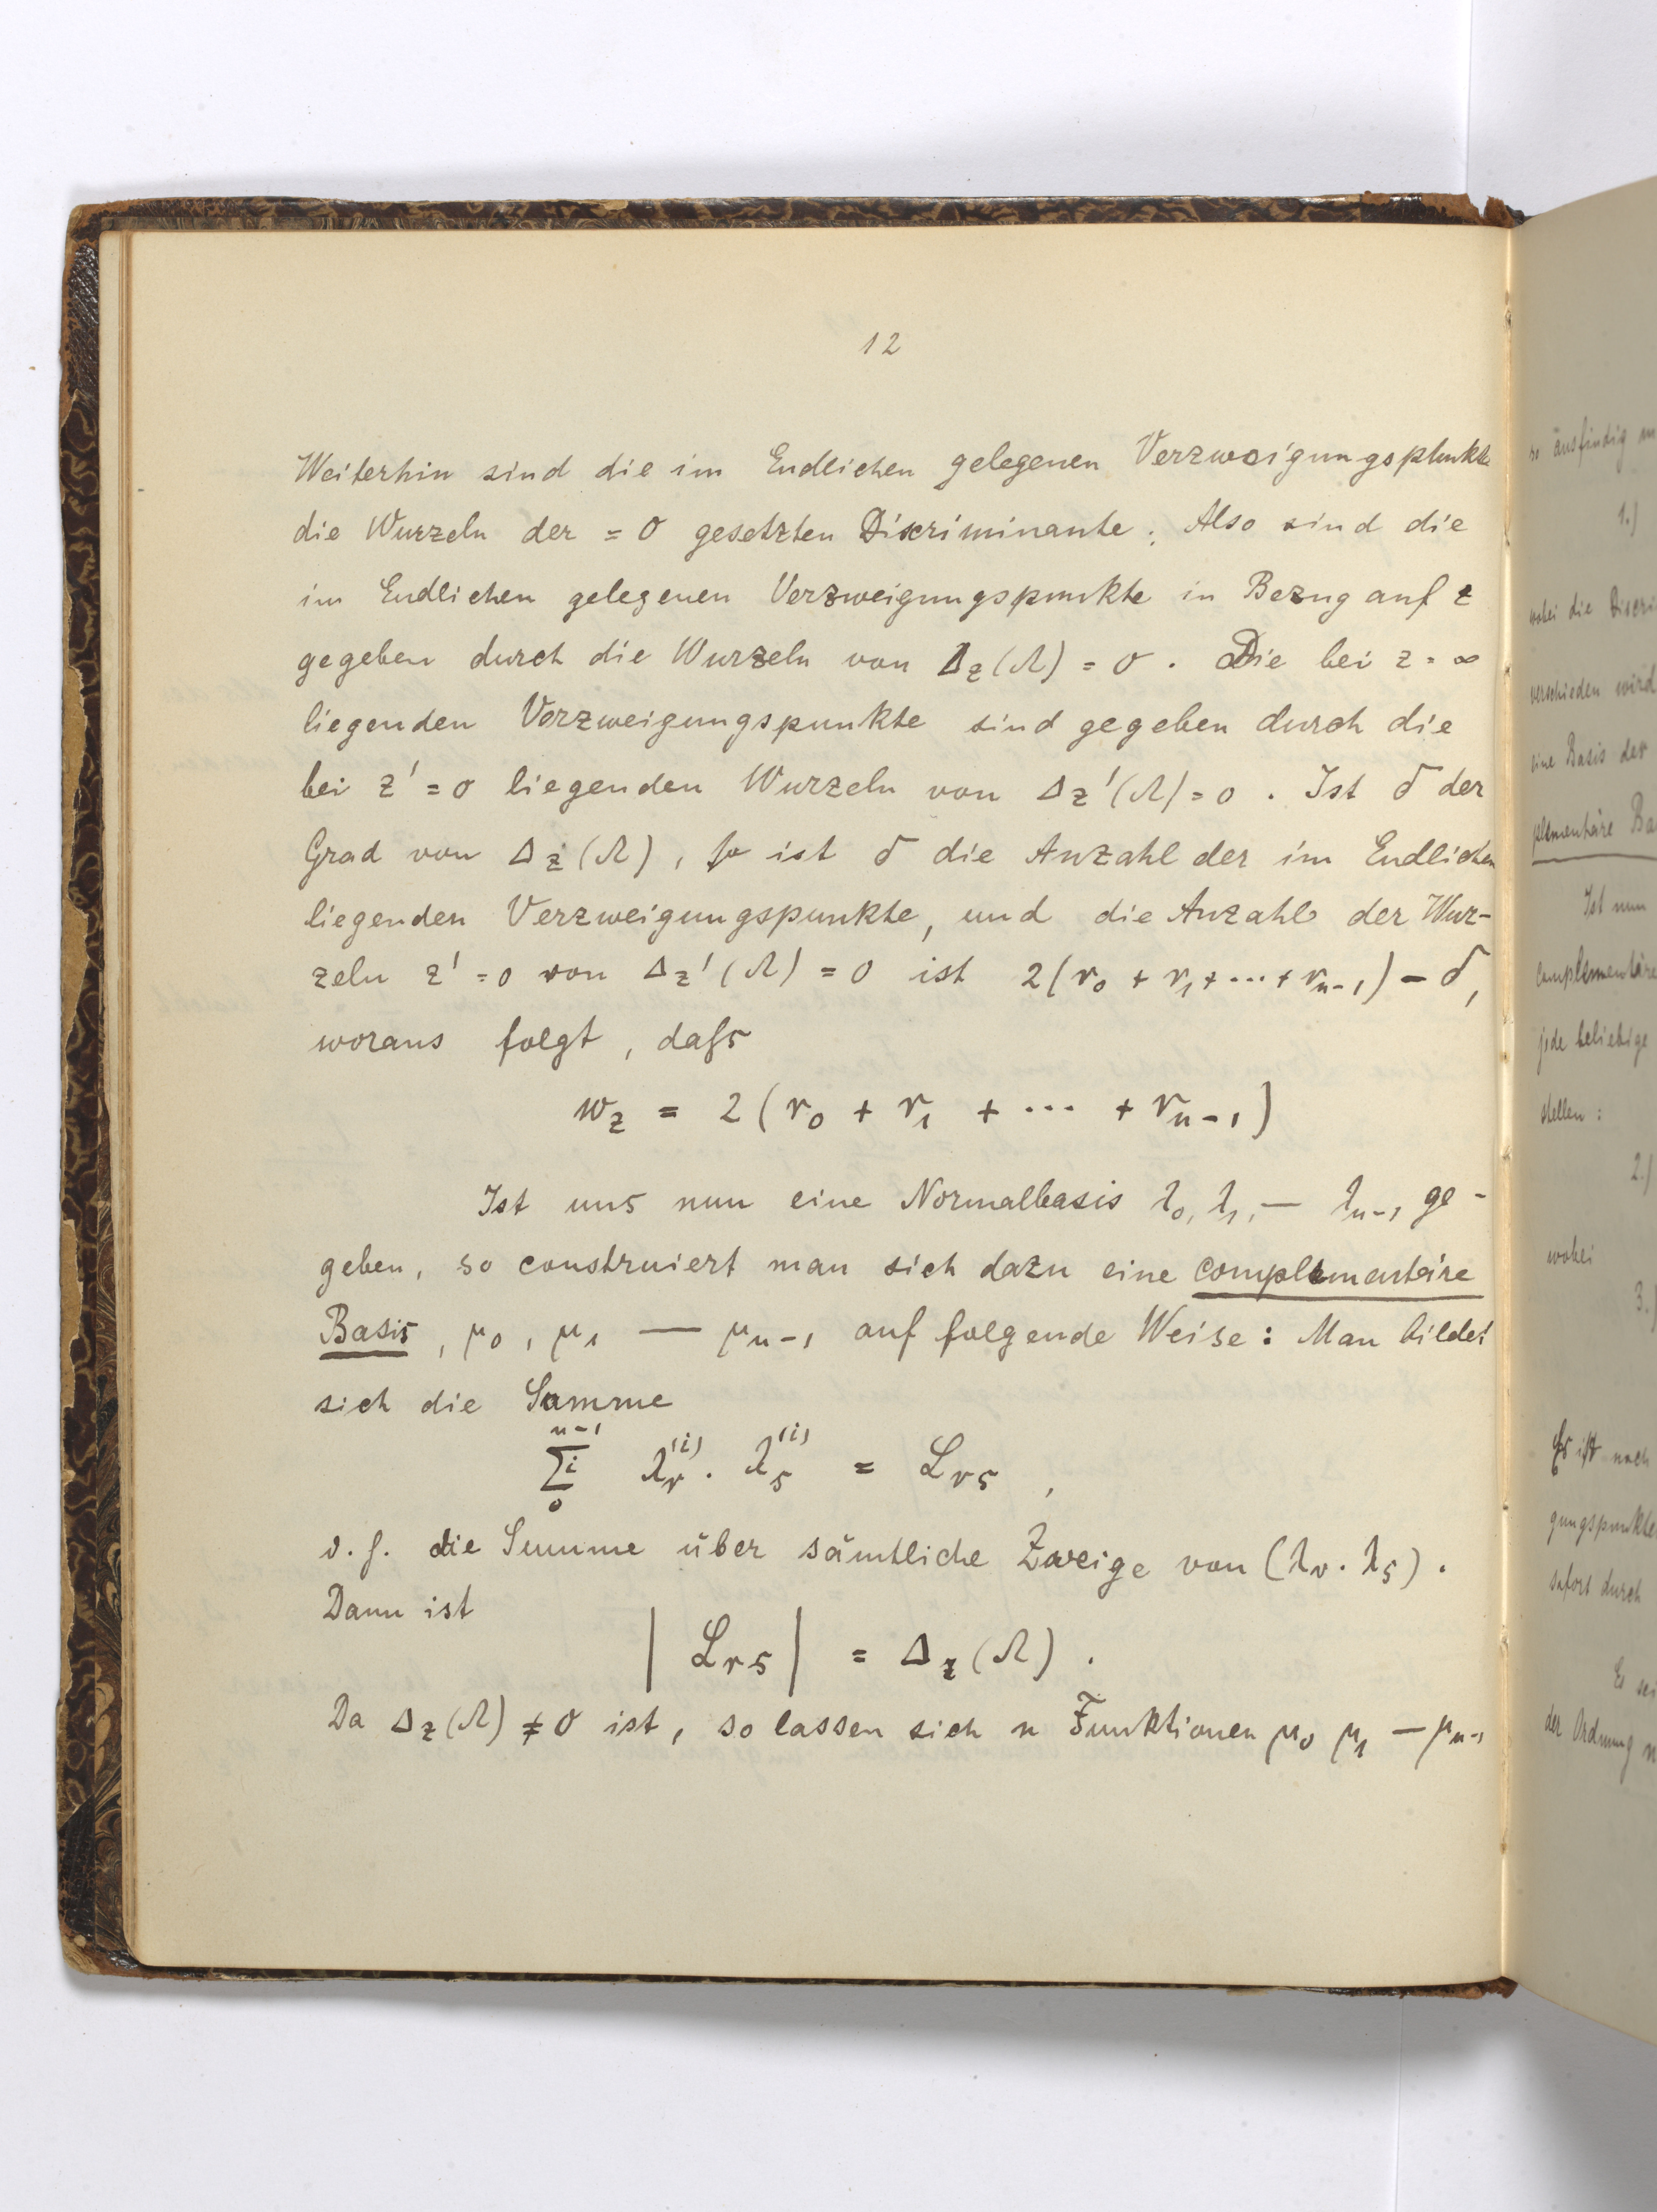 12
Weiterhin sind die im Endlichen gelegenen Verzweigungspunkte
die Wurzeln der = 0 gesetzten Discriminante. Also sind die
im Endlichen gelegenen Verzweigungspunkte in Bezug auf z
gegeben durch die Wurzeln von Δ_z(Λ) = 0. Die bei z = ∞
liegenden Verzweigungspunkte sind gegeben durch die
bei z' = 0 liegenden Wurzeln von Δ_z'(Λ) = 0. Ist δ der
Grad von Δ_z(Λ), so ist δ die Anzahl der im Endlichen
liegenden Verzweigungspunkte, und die Anzahl der Wur-
zeln z' = 0 von Δ_z'(Λ) = 0 ist 2(r_0 + r_1 + ... + r_{n-1}) - δ,
woraus folgt, dass
w_z = 2(r_0 + r_1 + ... + r_{n-1})
Ist uns nun eine Normalbasis λ_0, λ_1, — λ_{n-1} ge-
geben, so construiert man sich dazu eine complementäre
Basis, μ_0, μ_1 — μ_{n-1} auf folgende Weise: Man bildet
sich die Summe
∑_0^{n-1} i λ_r^{(i)} · λ_s^{(i)} = L_{rs},
d. h. die Summe über sämtliche Zweige von (λ_r · λ_s).
Dann ist
|L_{rs}| = Δ_z(Λ).
Da Δ_z(Λ) ≠ 0 ist, so lassen sich n Funktionen μ_0 μ_1 — μ_{n-1}
ausfindig
1.)
wobei die
verschieden wird
eine Basis der
Ist nun
jede beliebige
stellen:
2.)
wobei
3.)
Es ist nach
sofort durch
der Ordnung